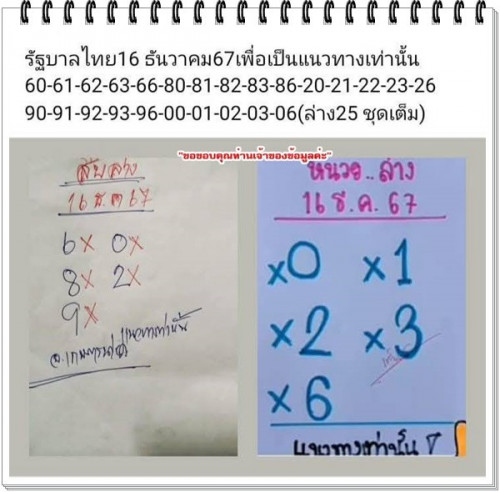 รัฐบาลไทย16 ธันวาคม67เพื่อเป็นแนวทางเท่านั้น
60-61-62-63-66-80-81-82-83-86-20-21-22-23-26
90-91-92-93-96-00-01-02-03-06(ล่าง25 ชุดเต็ม)
"ขอขอบคุณท่านเจ้าของข้อมูลค่ะ"
สิบล่าง
16 ธ.ค 67
6x 0x
8x 2x
9x
แนวทางเท่านั้น
หน่วย..ล่าง
16 ธ.ค. 67
x0 x1
x2 x3
x6
แนวทางเท่านั้น